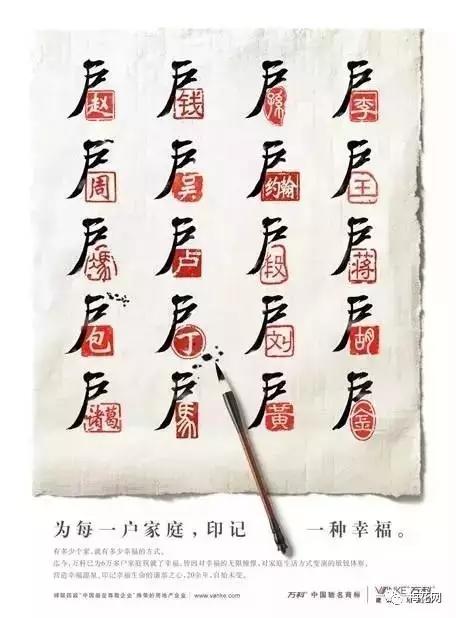 户赵 户钱 户孫 户李
户周 户吴 户约翰 户王
户馮 户卢 户段 户蒋
户包 户丁 户刘 户胡
户诸葛 户馬 户黃 户金
为每一户家庭，印记 一种幸福。
有多少个家，就有多少幸福的方式。
迄今，万科已为6万多户家庭筑就了幸福。皆因对幸福的无限憧憬，对家庭生活方式变迁的敏锐体察。
营造幸福愿景，印记幸福生命的谦恭之心，20余年，自始未变。
蝉联四届"中国最受尊敬企业"殊荣的房地产企业 | www.vanke.com
万科 中国驰名商标
VANKE 万科
梅花网